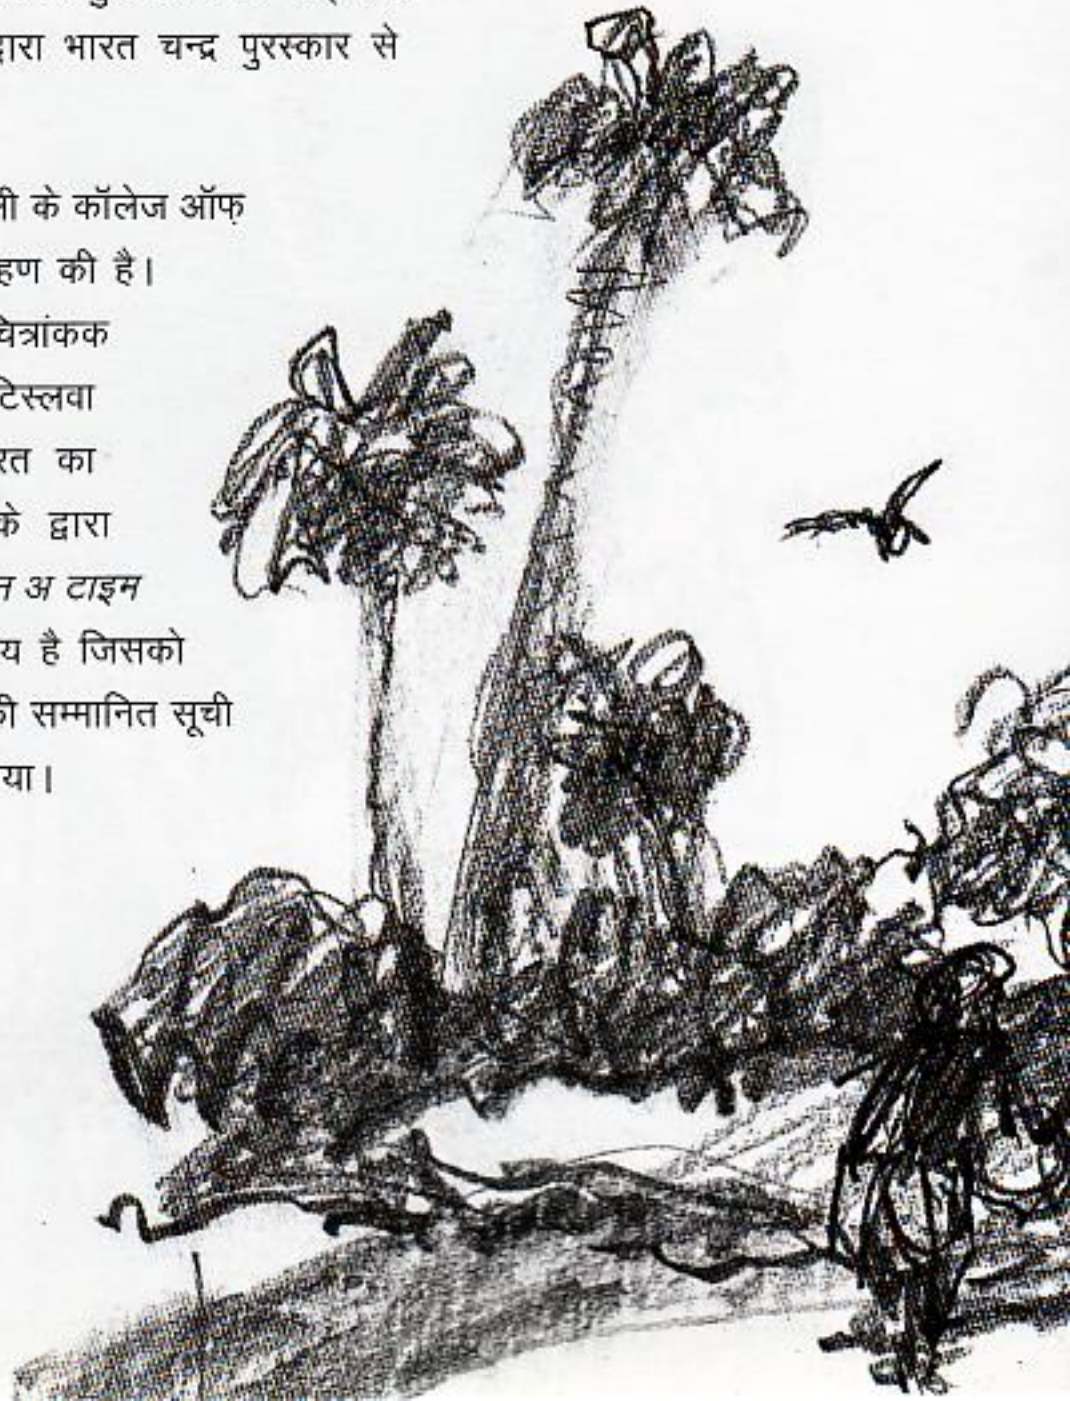 द्वारा भारत चन्द्र पुरस्कार से
ली के कॉलेज ऑफ़
हण की है।
चित्रांकक
टिस्लवा
रत का
के द्वारा
न अ टाइम
य है जिसको
की सम्मानित सूची
या।